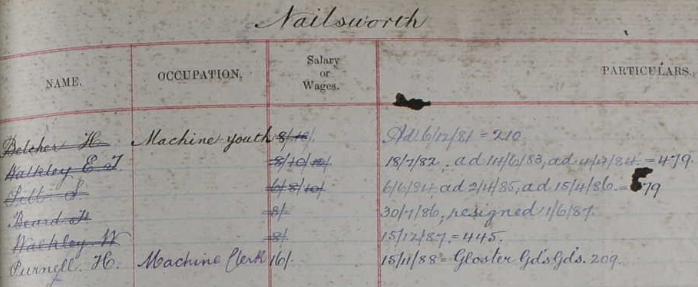 Nailsworth
NAME. OCCUPATION, Salary or Wages. PARTICULARS.
Belcher H. Machine youth 8/10/. Ad. 6/12/81 = 210
Walkley E. J 8/10/12/ 18/7/82, ad 14/6/83, ad = 479.
J. 6/8/10/ 6/6/84, ad 2/4/85, ad 15/4/86. = 579
Beard H 8/- 30/7/86, resigned 1/6/87.
Walkley W 8/ 15/12/87. = 445.
Purnell. H. Machine Clerk 16/. 15/11/88 = Gloster Gds Gds. 209.